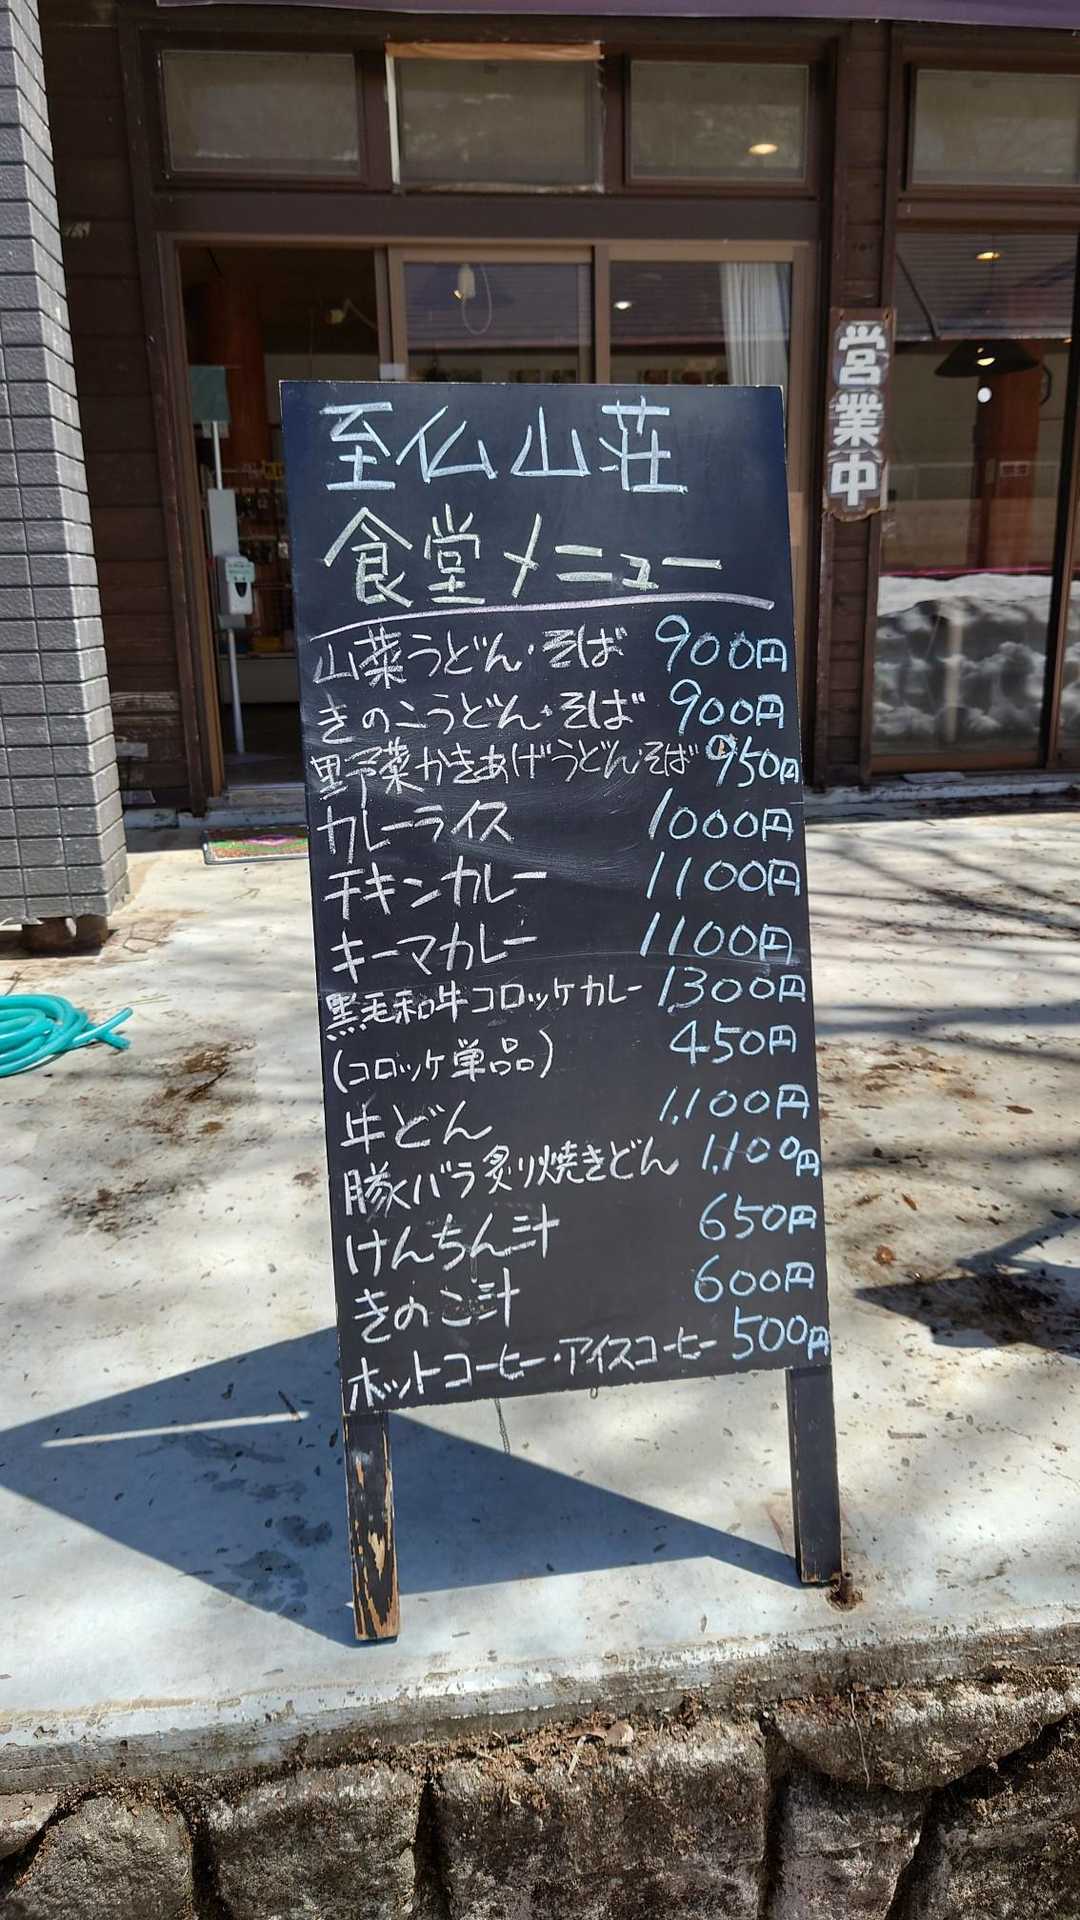 至仏山荘
食堂メニュー
山菜うどん・そば 900円
きのこうどん・そば 900円
野菜かきあげうどん・そば 950円
カレーライス 1000円
チキンカレー 1100円
キーマカレー 1100円
黒毛和牛コロッケカレー 1,300円
(コロッケ単品) 450円
牛どん 1,100円
豚バラ炙り焼きどん 1,100円
けんちん汁 650円
きのこ汁 600円
ホットコーヒー・アイスコーヒー 500円
営業中